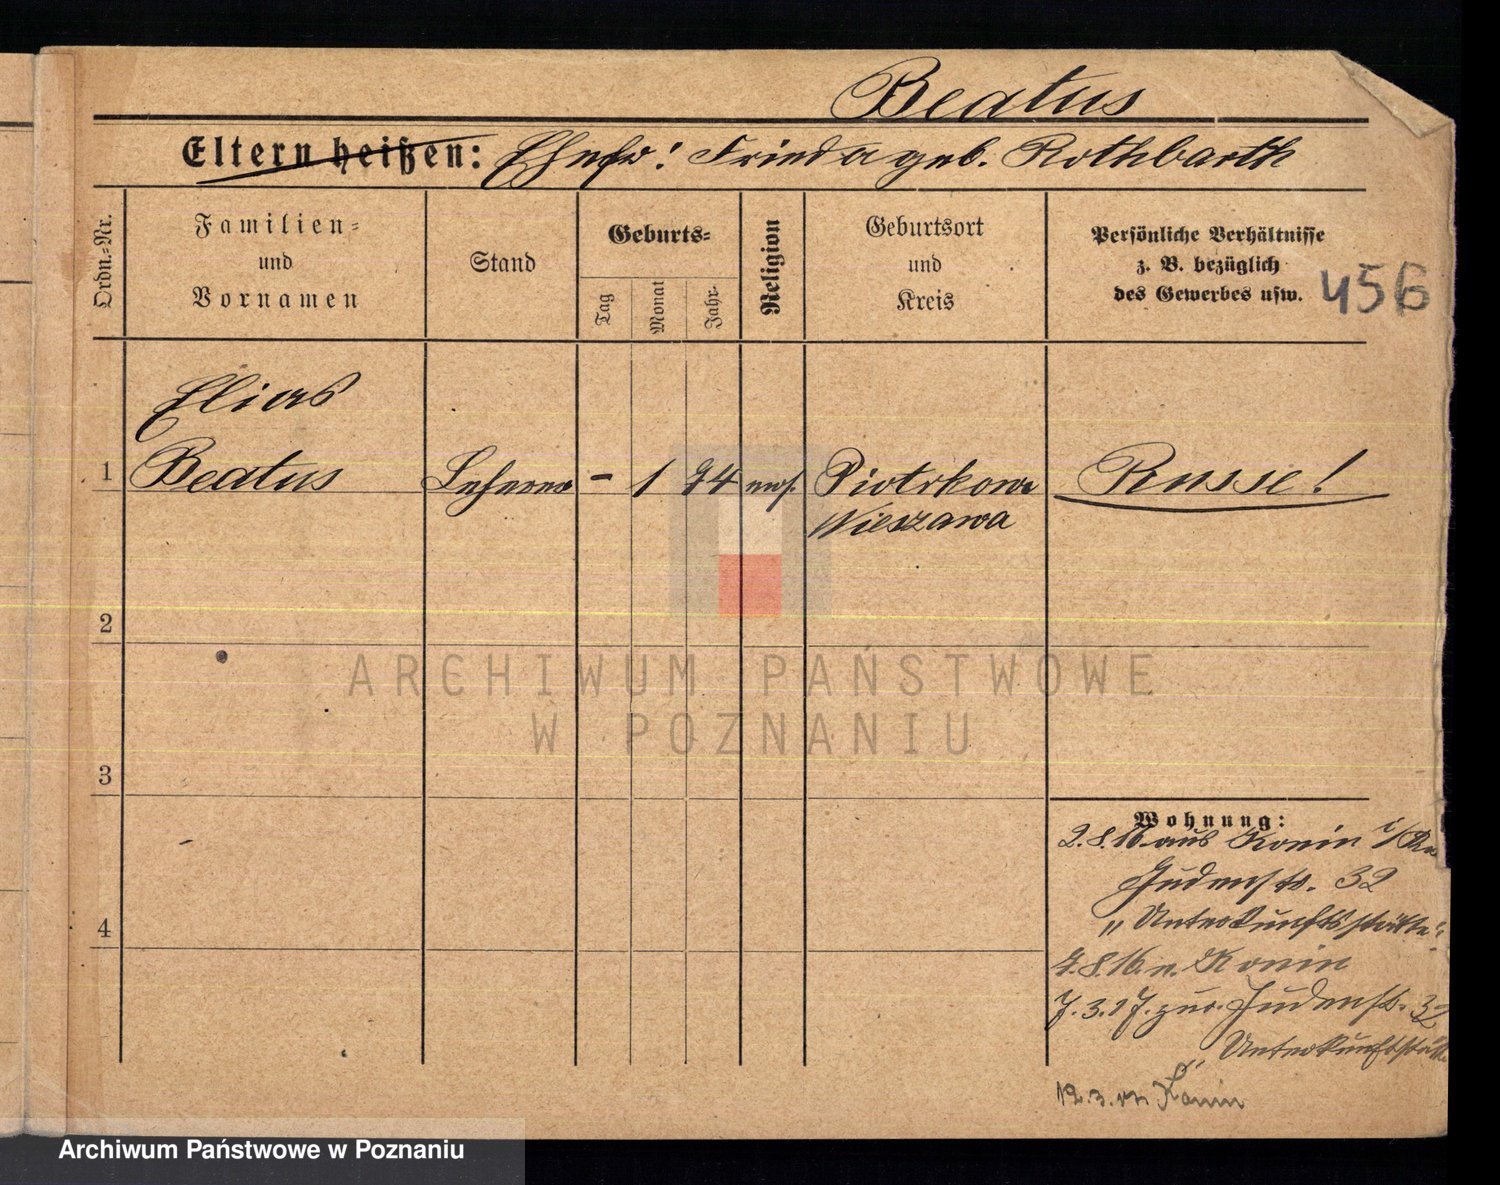 Beatus
Eltern heißen: Ehefr: Frieda geb. Rothbarth
Ordn.-Nr.
Familien-
und
Vornamen
Stand
Geburts-
Tag
Monat
Jahr
Religion
Geburtsort
und
Kreis
Persönliche Verhältnisse
z. B. bezüglich
des Gewerbes usw.
456
Elias
1 Beatus Lehrer - 1 74 mos. Piotrkowo Russe!
Nieszawa
2
3
4
Wohnung:
2.8.16 aus Konin
Judenstr. 32
„Unterkunftsstätte"
4.8.16 n. Konin
7.3.17. zur. Judenstr. 32
„Unterkunftsstätte
12.3. Konin
Archiwum Państwowe
w Poznaniu
Archiwum Państwowe w Poznaniu